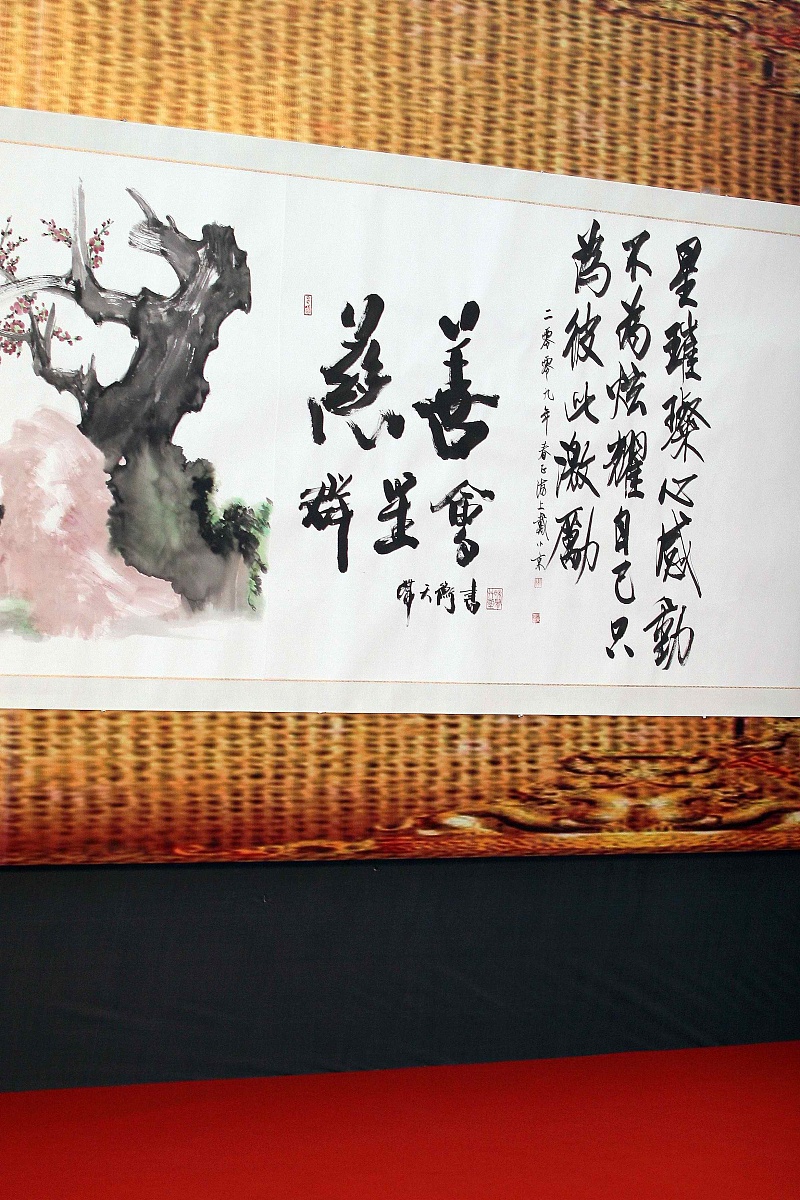 星璀璨心感動
不為炫耀自己只
為彼此激勵
二零零九年春正海上戴小京
慈善
群星會
韓天衡書